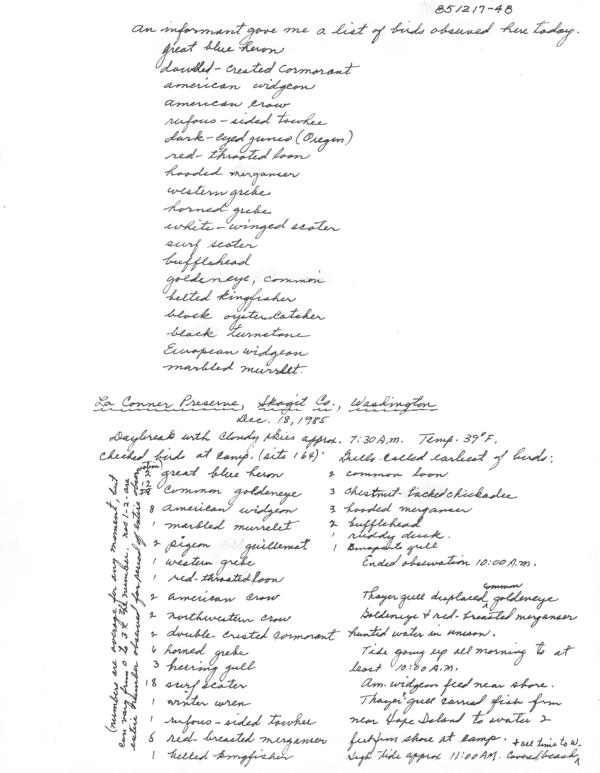 851217-48
An informant gave me a list of birds observed here today.
great blue heron
double-crested cormorant
american widgeon
american crow
rufous-sided towhee
dark-eyed junco (Oregon)
red-throated loon
hooded merganser
western grebe
horned grebe
white-winged scoter
surf scoter
bufflehead
goldeneye, common
belted kingfisher
black oystercatcher
black turnstone
European widgeon
marbled murrelet.
La Conner Preserve, Skagit Co., Washington
Dec. 18, 1985
Daybreak with cloudy skies approx. 7:30 A.M. Temp. 39°F.
Checked birds at camp. (site 164). Gulls called earliest of birds:
2 great blue heron
common goldeneye
8 american widgeon
1 marbled murrelet
2 pigeon guillemot
1 western grebe
1 red-throated loon
2 american crow
2 northwestern crow
2 double-crested cormorant
6 horned grebe
3 herring gull
18 surf scoter
1 winter wren
1 rufous-sided towhee
5 red-breasted merganser
1 belted kingfisher
2 common loon
3 chestnut-backed chickadee
3 hooded merganser
2 bufflehead
1 ruddy duck
1 Bonaparte gull
Ended observation 10:00 A.M.
Thayer gull displaced common goldeneye
Goldeneye & red-breasted merganser
hunted water in unison.
Tide going up all morning to at
least 10:00 A.M.
Am. widgeon feed near shore.
Thayer gull carried fish from
near Hope Island to water 2
feet from shore at camp. + all time to W.
High Tide approx 11:00 AM. Covered beach
(numbers are average for any moment, but
can vary from 0 to 3X the number. nos 1-2 are
entire number observed for period of entire observation